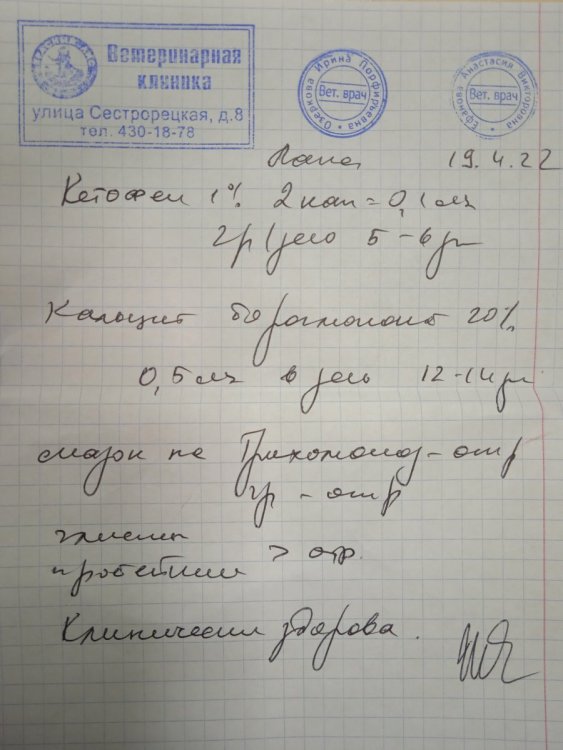 Ветеринарная
клиника
улица Сестрорецкая, д.8
тел. 430-18-78
Озеркова Ирина Порфирьевна
Вет. врач
Ефанова Анастасия Викторовна
Вет. врач
19.4.22
Кетофен 1% 2 кап = 0,1 мл
2р/день 5-6 дн
Кальция борглюконат 20%
0,5 мл в день 12-14 дн
смазок на Трихомоноз - отр
гр - отр
отр.
Клинически здорова.